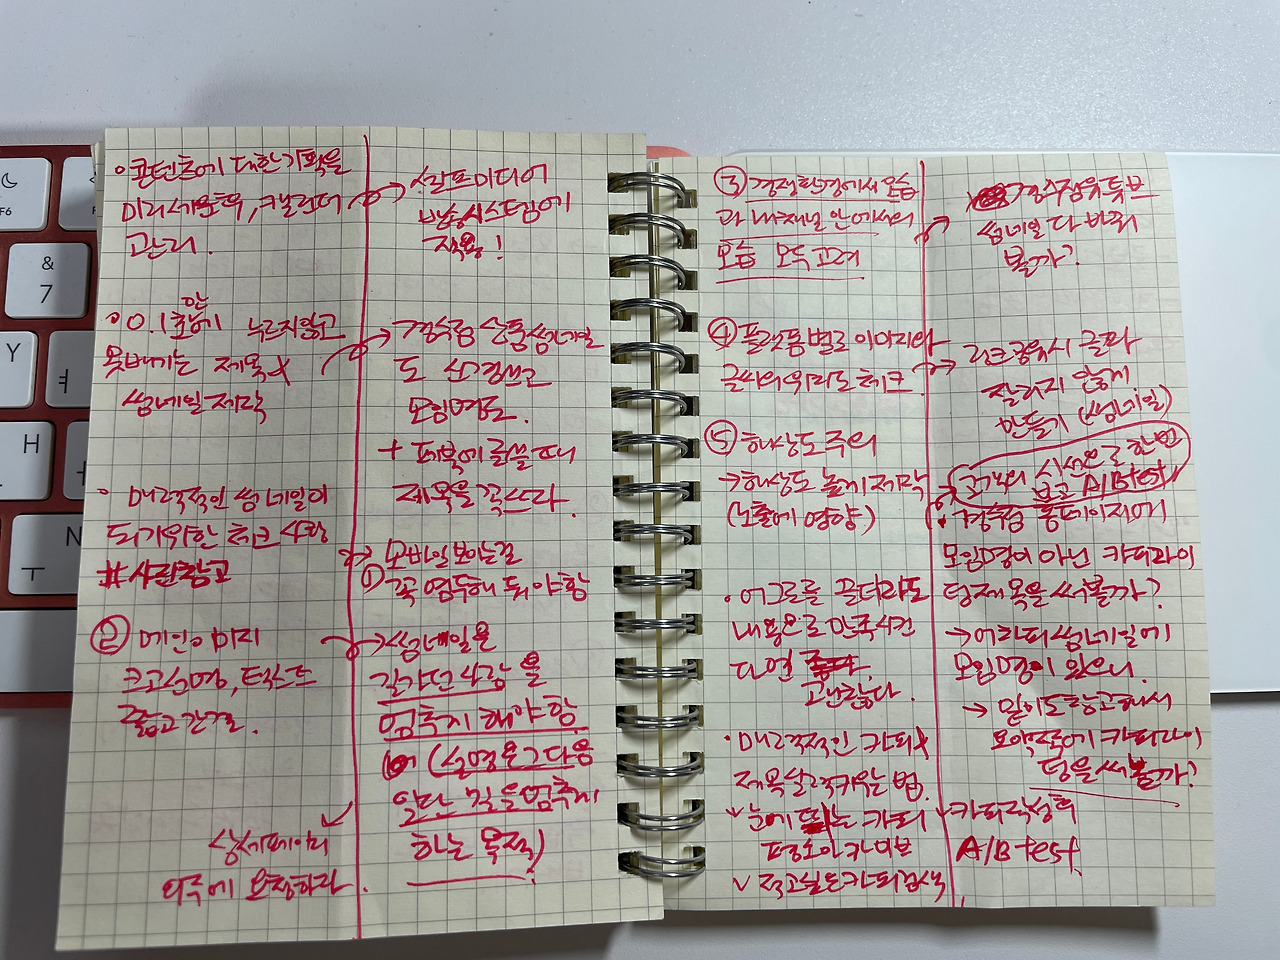 • 콘텐츠에 대한 기획을
미리 세운 후, 캘린더
관리.
• 0.1초만에 누르지않고
못배기는 제목 &
썸네일 제작
• 매력적인 썸네일이
되기위한 체크 사항
#사진참고
② 메인이미지
크고 선명, 텍스트
짧고 간결.
상세페이지
외주에 요청하자.
→ 셀프미디어
방송시스템에
적용!
→ 경수점 상품썸네일
도 신경쓰고
모임명도.
+ 페북에 글쓸 때
제목을 꼭 쓰다.
→ 모바일 보이는걸
① 꼭 염두해 둬야함
→ 썸네일은
길가던 사람을
멈추게 해야함.
(설명은 그 다음
일단 길을 멈추게
하는 목적)
③ 경쟁환경에서 모습
과 내채널 안에서의
모습 모두 고려
④ 플랫폼별로 이미지와
글씨의 위치도 체크.
⑤ 해상도 주의
→ 해상도 높게 제작
(노출에 영향)
• 어그로를 끌더라도
내용으로 만족시킨
다면
괜찮다.
• 매력적인 카피 &
제목실력키우는 법.
v 눈에 띄는 카피
평소 아카이브
v 적고싶은 카피 검색
→ 경수점유튜브
썸네일 다 바꿔
볼까?
→ 링크공유시 글자
잘리지 않게
만들기 (썸네일)
고객의 시선으로 한번
보고 A/B test
• 경수점 홈페이지에
모임명이 아닌 카피라이
팅 제목을 써볼까?
→ 어차피 썸네일에
모임명이 있으니.
→ 많이도 광고해서
카피라이
팅을 써볼까?
- 카피 작성 후
A/B test.
⇧
F6
&
7
Y
ㅕ
H
N
ㅜ